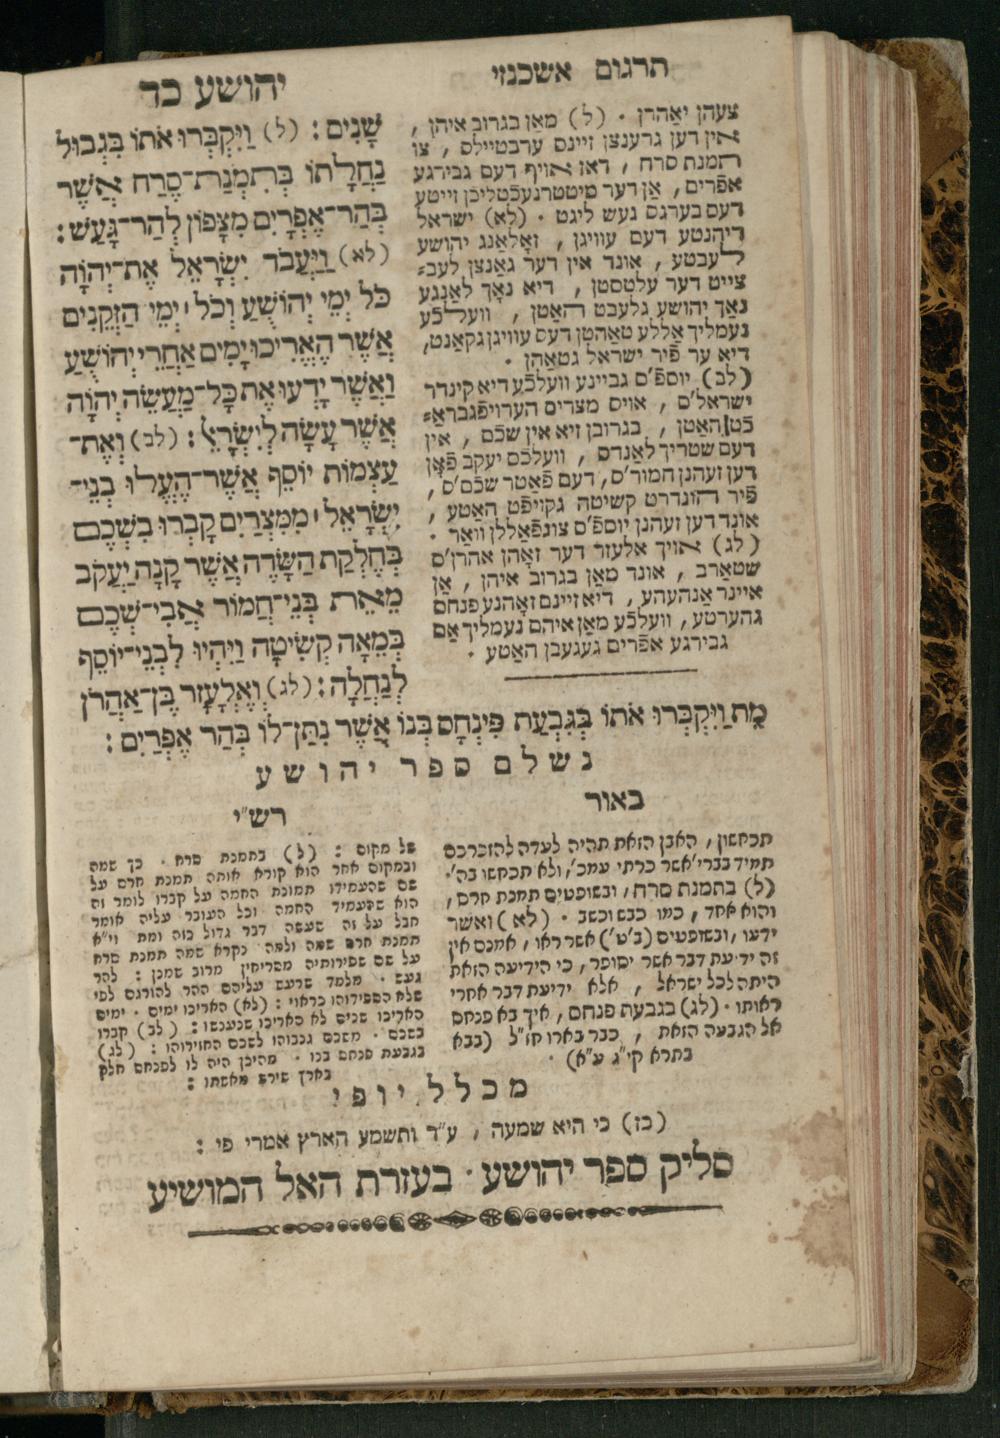 תרגום אשכנזי
יהושע כד
שָׁנִים : (ל) וַיִּקְבְּרוּ אֹתוֹ בִּגְבוּל
נַחֲלָתוֹ בְּתִמְנַת־סֶרַח אֲשֶׁר
בְּהַר־אֶפְרָיִם מִצָּפוֹן לְהַר־גָּעַשׁ :
(לא) וַיַּעֲבֹד יִשְׂרָאֵל אֶת־יְהוָֹה
כֹּל יְמֵי יְהוֹשֻׁעַ וְכֹל ׀ יְמֵי הַזְּקֵנִים
אֲשֶׁר הֶאֱרִיכוּ יָמִים אַחֲרֵי יְהוֹשֻׁעַ
וַאֲשֶׁר יָדְעוּ אֵת כָּל־מַעֲשֵׂה יְהוָֹה
אֲשֶׁר עָשָׂה לְיִשְׂרָאֵל : (לב) וְאֶת־
עַצְמוֹת יוֹסֵף אֲשֶׁר־הֶעֱלוּ בְנֵי־
יִשְׂרָאֵל ׀ מִמִּצְרַיִם קָבְרוּ בִשְׁכֶם
בְּחֶלְקַת הַשָּׂדֶה אֲשֶׁר קָנָה יַעֲקֹב
מֵאֵת בְּנֵי־חֲמוֹר אֲבִי־שְׁכֶם
בְּמֵאָה קְשִׂיטָה וַיִּהְיוּ לִבְנֵי־יוֹסֵף
לְנַחֲלָה : (לג) וְאֶלְעָזָר בֶּן־אַהֲרֹן
מֵת וַיִּקְבְּרוּ אֹתוֹ בְּגִבְעַת פִּינְחָס בְּנוֹ אֲשֶׁר נִתַּן־לוֹ בְּהַר אֶפְרָיִם :
צעהן יאַהרן . (ל) מאַן בגרוב איהן ,
אין דען גרענצן זיינס ערבטיילס , צו
תמנת סרח , דאז אויף דעם גבירגע
אפרים , אַן דער מיטטרנעכטליכן זייטע
דעס בערגס געש ליגט . (לא) ישראל
דיהנטע דעם עוויגן , זאָלאַנג יהושע
לעבטע , אונד אין דער גאַנצן לעב=
צייט דער עלטסטן , דיא נאָך לאַנגע
נאַך יהושע געלעבט האַטן , וועלכע
נעמליך אַללע טאַהטן דעס עוויגן געקאַנט,
דיא ער פֿיר ישראל געטאַהן .
(לב) יוסף'ס גביינע וועלכע דיא קינדר
ישראל'ס , אויס מצרים הערויפגבראַ=
כט האַטן , בגרובן זיא אין שכם , אין
דעם שטריך לאַנדס , וועלכס יעקב פֿאָן
דען זעהנן חמור'ס, דעם פֿאָטר שכם'ס ,
פֿיר הונדרט קשיטה געקויפט האַטע ,
אונד דען זעהנן יוסף'ס צוגעפֿאַללן וואַר .
(לג) אויך אלעזר דער זאָהן אהרן'ס
שטאַרב , אונד מאַן בגרוב איהן , אַן
איינר אַנהעהע , דיא זיינם זאָהנע פנחס
געהערטע, וועלכע מאַן איהם נעמליך אַם
גבירגע אפרים געגעבן האַטע .
נשלם ספר יהושע
באור
תכחשון , האבן הזאת תהיה לעדה להזכרכם
תמיד בברי' אשר כרתי עמכ', ולא תכחשו בה'.
(ל) בתמנת סרח , ובשופטים תמנת חרס ,
והוא אחד , כמו כבש וכשב . (לא) ואשר
ידעו , ובשופטים (ב' ט') אשר ראו , אמנם אין
זה ידיעת דבר אשר יסופר , כי הידיעה הזאת
היתה לכל ישראל , אלא ידיעת דבר אחרי
ראותו . (לג) בגבעת פנחס , איך בא פנחס
אל הגבעה הזאת , כבר בארו חז"ל (בבא
בתרא קי"ג ע"א) .
רש"י
של מקום : (ל) בתמנת סרח . כך שמה
ובמקום אחר הוא קורא אותה תמנת חרס על
שם שהעמידו תמונת החמה על קברו לומר זה
הוא שהעמיד החמה וכל העובר עליה אומר
חבל על זה שעשה דבר גדול כזה ומת וי"א
תמנת חרס שמה ולמה נקרא שמה תמנת סרח
על שם שפירותיה מסריחין מרוב שמנן : להר
געש . מלמד שרעש עליהם ההר להורגם לפי
שלא הספידוהו כראוי : (לא) האריכו ימים . ימים
האריכו שנים לא האריכו שנענשו : (לב) קברו
בשכם . משכם גנבוהו לשכם החזירוהו : (לג)
בגבעת פנחס בנו . מהיכן היה לו לפנחס חלק
בארץ שירש מאשתו :
מכלל יופי
(כז) כי היא שמעה , ע"ד ותשמע הארץ אמרי פי :
סליק ספר יהושע . בעזרת האל המושיע